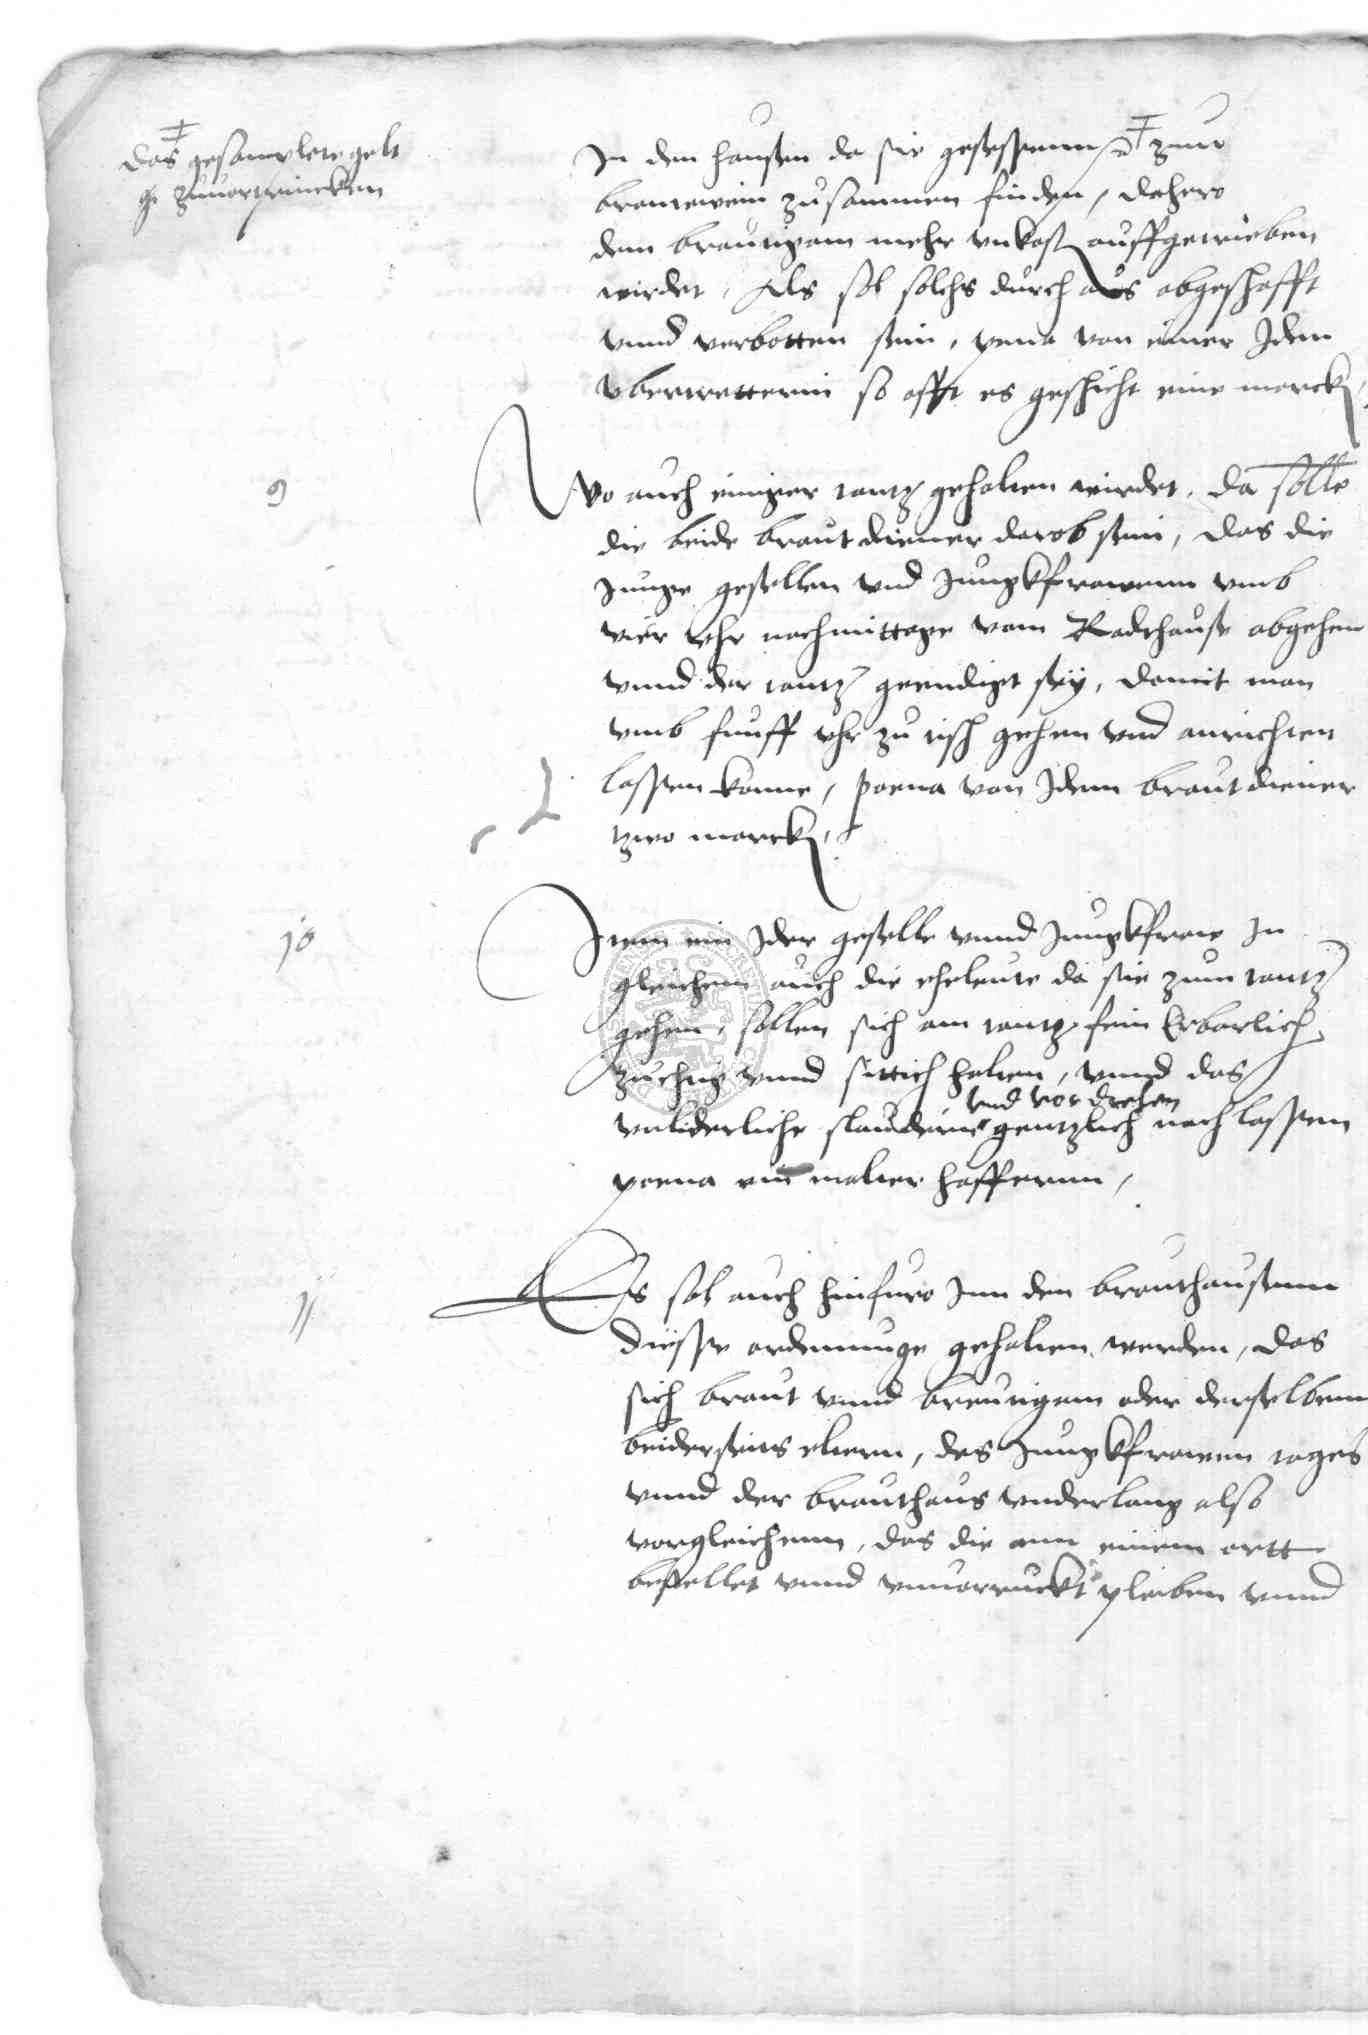 das gesamplete gelt
zuuortrincken
In den hausen da sie gesessenn zum
brantewein zusammen finden, dahero
dem breutigam mehr vnkost auffgetrieben
wirdet, Als sol solchs durch aus abgeschafft
vnnd verbotten sein, pena von einer Idern
vbertretterin so offt es geschicht eine marck,
9
Wo auch einiger tantz gehalten wirdet, da solle
die beide brautdiener darob sein, das die
Junge gesellen vnd Jungkfrawenn vmb
vier vhr nachmittage vom Radthause abgehen
vnnd der tantz geendiget sey, damit man
vmb funff vhr zu tisch gehen vnd anrichten
lassen konne, poena von Idem brautdiener
tzwo marck,
10
Item ein Jder geselle vnnd Jungkfraw In
gleichem auch die eheleute da sie zum tantz
gehen, sollen sich am tantz fein Erbarlich
zuchtig vnnd sittich halten, vnnd das
vnd vordrehen
vnliderliche slaudern gentzlich nachlassenn
poena ein malter haffernn,
11
Es sol auch hinfuro Inn den brauthausernn
diesse ordenunge gehalten werden, das
sich braut vnnd breutigam oder derselbenn
beiderseits eltern, des Jungkfrawen tages
vnnd der brauthaus vnderlang also
vorgleichenn, das die ann einem ortt
bestellet vnnd vnuorruckt pleiben vnnd